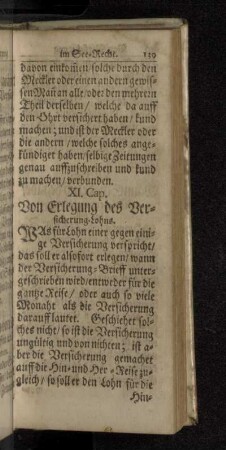 im See-Recht. 139
davon einkom̃en solche durch den
Meckler oder einen andern gewis-
sen Mañ an alle/ oder den mehrern
Theil derselben/ welche da auff
den Ohrt versichert haben/ kund
machen; und ist der Meckler oder
die andern/ welche solches ange-
kündiger haben/ selbige Zeitungen
genau auffzuschreiben und kund
zu machen/ verbunden.
XI. Cap.
Von Erlegung des Ver-
sicherung-Lohns.
WAs für Lohn einer gegen eini-
ge Versicherung verspricht/
das soll er alsofort erlegen/ wann
der Versicherung-Brieff unter-
geschrieben wird/ entweder für die
gantze Reise/ oder auch so viele
Monaht als die Versicherung
darauff lautet. Geschiehet sol-
ches nicht/ so ist die Versicherung
ungültig und von nühren; ist a-
ber die Versicherung gemachet
auff die Hin- und Her-Reise zu-
gleich/ so soll er den Lohn für die
Hin-